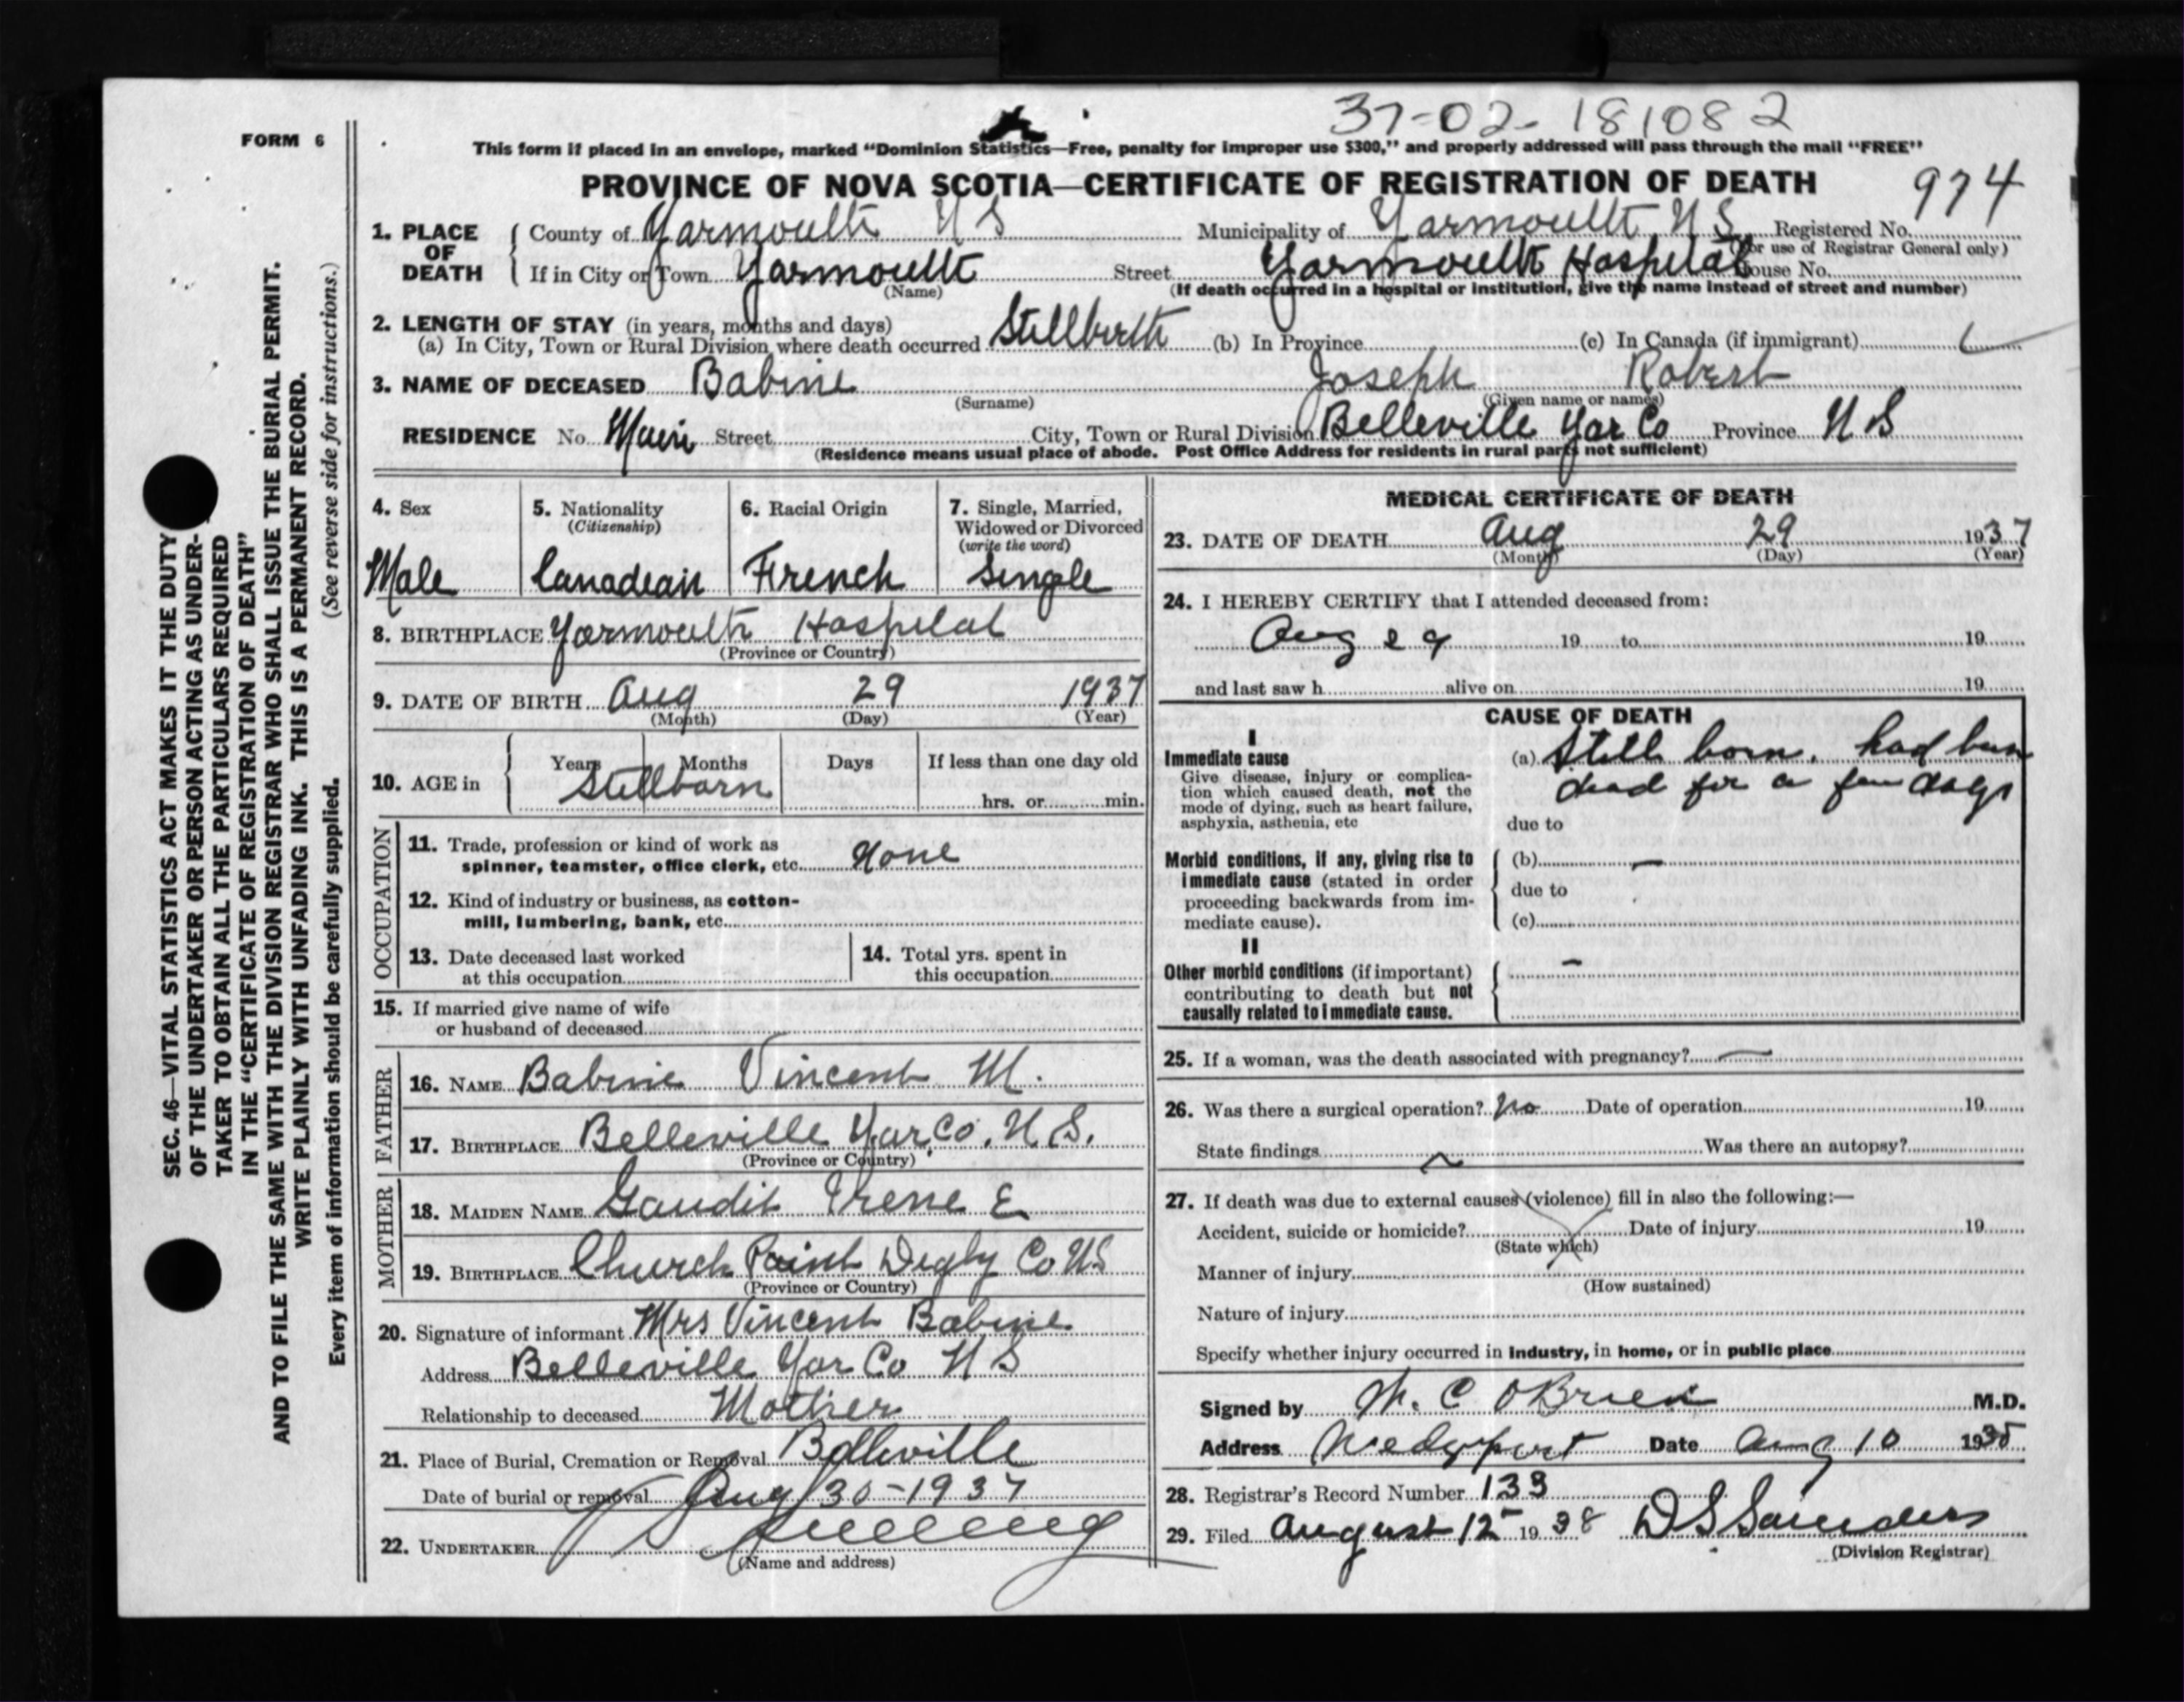 37-02-181082
FORM 6
This form if placed in an envelope, marked “Dominion Statistics—Free, penalty for improper use $300,” and properly addressed will pass through the mail “FREE”
PROVINCE OF NOVA SCOTIA—CERTIFICATE OF REGISTRATION OF DEATH
974
1. PLACE OF DEATH { County of Yarmouth N S Municipality of Yarmouth N S Registered No.
(For use of Registrar General only)
If in City or Town Yarmouth Street Yarmouth Hospital House No.
(Name) (If death occurred in a hospital or institution, give the name instead of street and number)
2. LENGTH OF STAY (in years, months and days)
(a) In City, Town or Rural Division where death occurred Stillbirth (b) In Province (c) In Canada (if immigrant)
3. NAME OF DECEASED Babine Joseph Robert
(Surname) (Given name or names)
RESIDENCE No. Main Street City, Town or Rural Division Belleville Yar Co Province N S
(Residence means usual place of abode. Post Office Address for residents in rural parts not sufficient)
4. Sex 5. Nationality (Citizenship) 6. Racial Origin 7. Single, Married, Widowed or Divorced (write the word)
Male Canadian French Single
8. BIRTHPLACE Yarmouth Hospital
(Province or Country)
9. DATE OF BIRTH Aug 29 1937
(Month) (Day) (Year)
10. AGE in { Years Months Days If less than one day old
Stillborn hrs. or min.
OCCUPATION
11. Trade, profession or kind of work as
spinner, teamster, office clerk, etc. None
12. Kind of industry or business, as cotton-
mill, lumbering, bank, etc.
13. Date deceased last worked
at this occupation
14. Total yrs. spent in
this occupation
15. If married give name of wife
or husband of deceased
FATHER
16. NAME Babine Vincent M.
17. BIRTHPLACE Belleville Yar, Co. N. S.
(Province or Country)
MOTHER
18. MAIDEN NAME Gaudit Irene E
19. BIRTHPLACE Church Point Digby Co N S
(Province or Country)
20. Signature of informant Mrs Vincent Babine
Address Belleville Yar Co N S
Relationship to deceased Mother
21. Place of Burial, Cremation or Removal Belleville
Date of burial or removal Aug 30-1937
22. UNDERTAKER
(Name and address)
MEDICAL CERTIFICATE OF DEATH
23. DATE OF DEATH Aug 29 1937
(Month) (Day) (Year)
24. I HEREBY CERTIFY that I attended deceased from:
Aug 29 19 to 19
and last saw h alive on 19
CAUSE OF DEATH
I
Immediate cause
Give disease, injury or complica-
tion which caused death, not the
mode of dying, such as heart failure,
asphyxia, asthenia, etc
(a) Still born. had been
dead for a few days
due to
Morbid conditions, if any, giving rise to
immediate cause (stated in order
proceeding backwards from im-
mediate cause).
(b) —
due to
(c)
II
Other morbid conditions (if important)
contributing to death but not
causally related to immediate cause.
–
25. If a woman, was the death associated with pregnancy? —
26. Was there a surgical operation? No Date of operation 19
State findings ~ Was there an autopsy?
27. If death was due to external causes (violence) fill in also the following:—
Accident, suicide or homicide? Date of injury 19
(State which)
Manner of injury
(How sustained)
Nature of injury
Specify whether injury occurred in industry, in home, or in public place
Signed by M. C OBrien M.D.
Address Wedgeport Date Aug 10 1938
28. Registrar's Record Number 133
29. Filed August 12 1938 D S Saunders
(Division Registrar)
SEC. 46—VITAL STATISTICS ACT MAKES IT THE DUTY
OF THE UNDERTAKER OR PERSON ACTING AS UNDER-
TAKER TO OBTAIN ALL THE PARTICULARS REQUIRED
IN THE “CERTIFICATE OF REGISTRATION OF DEATH”
AND TO FILE THE SAME WITH THE DIVISION REGISTRAR WHO SHALL ISSUE THE BURIAL PERMIT.
WRITE PLAINLY WITH UNFADING INK. THIS IS A PERMANENT RECORD.
Every item of information should be carefully supplied. (See reverse side for instructions.)